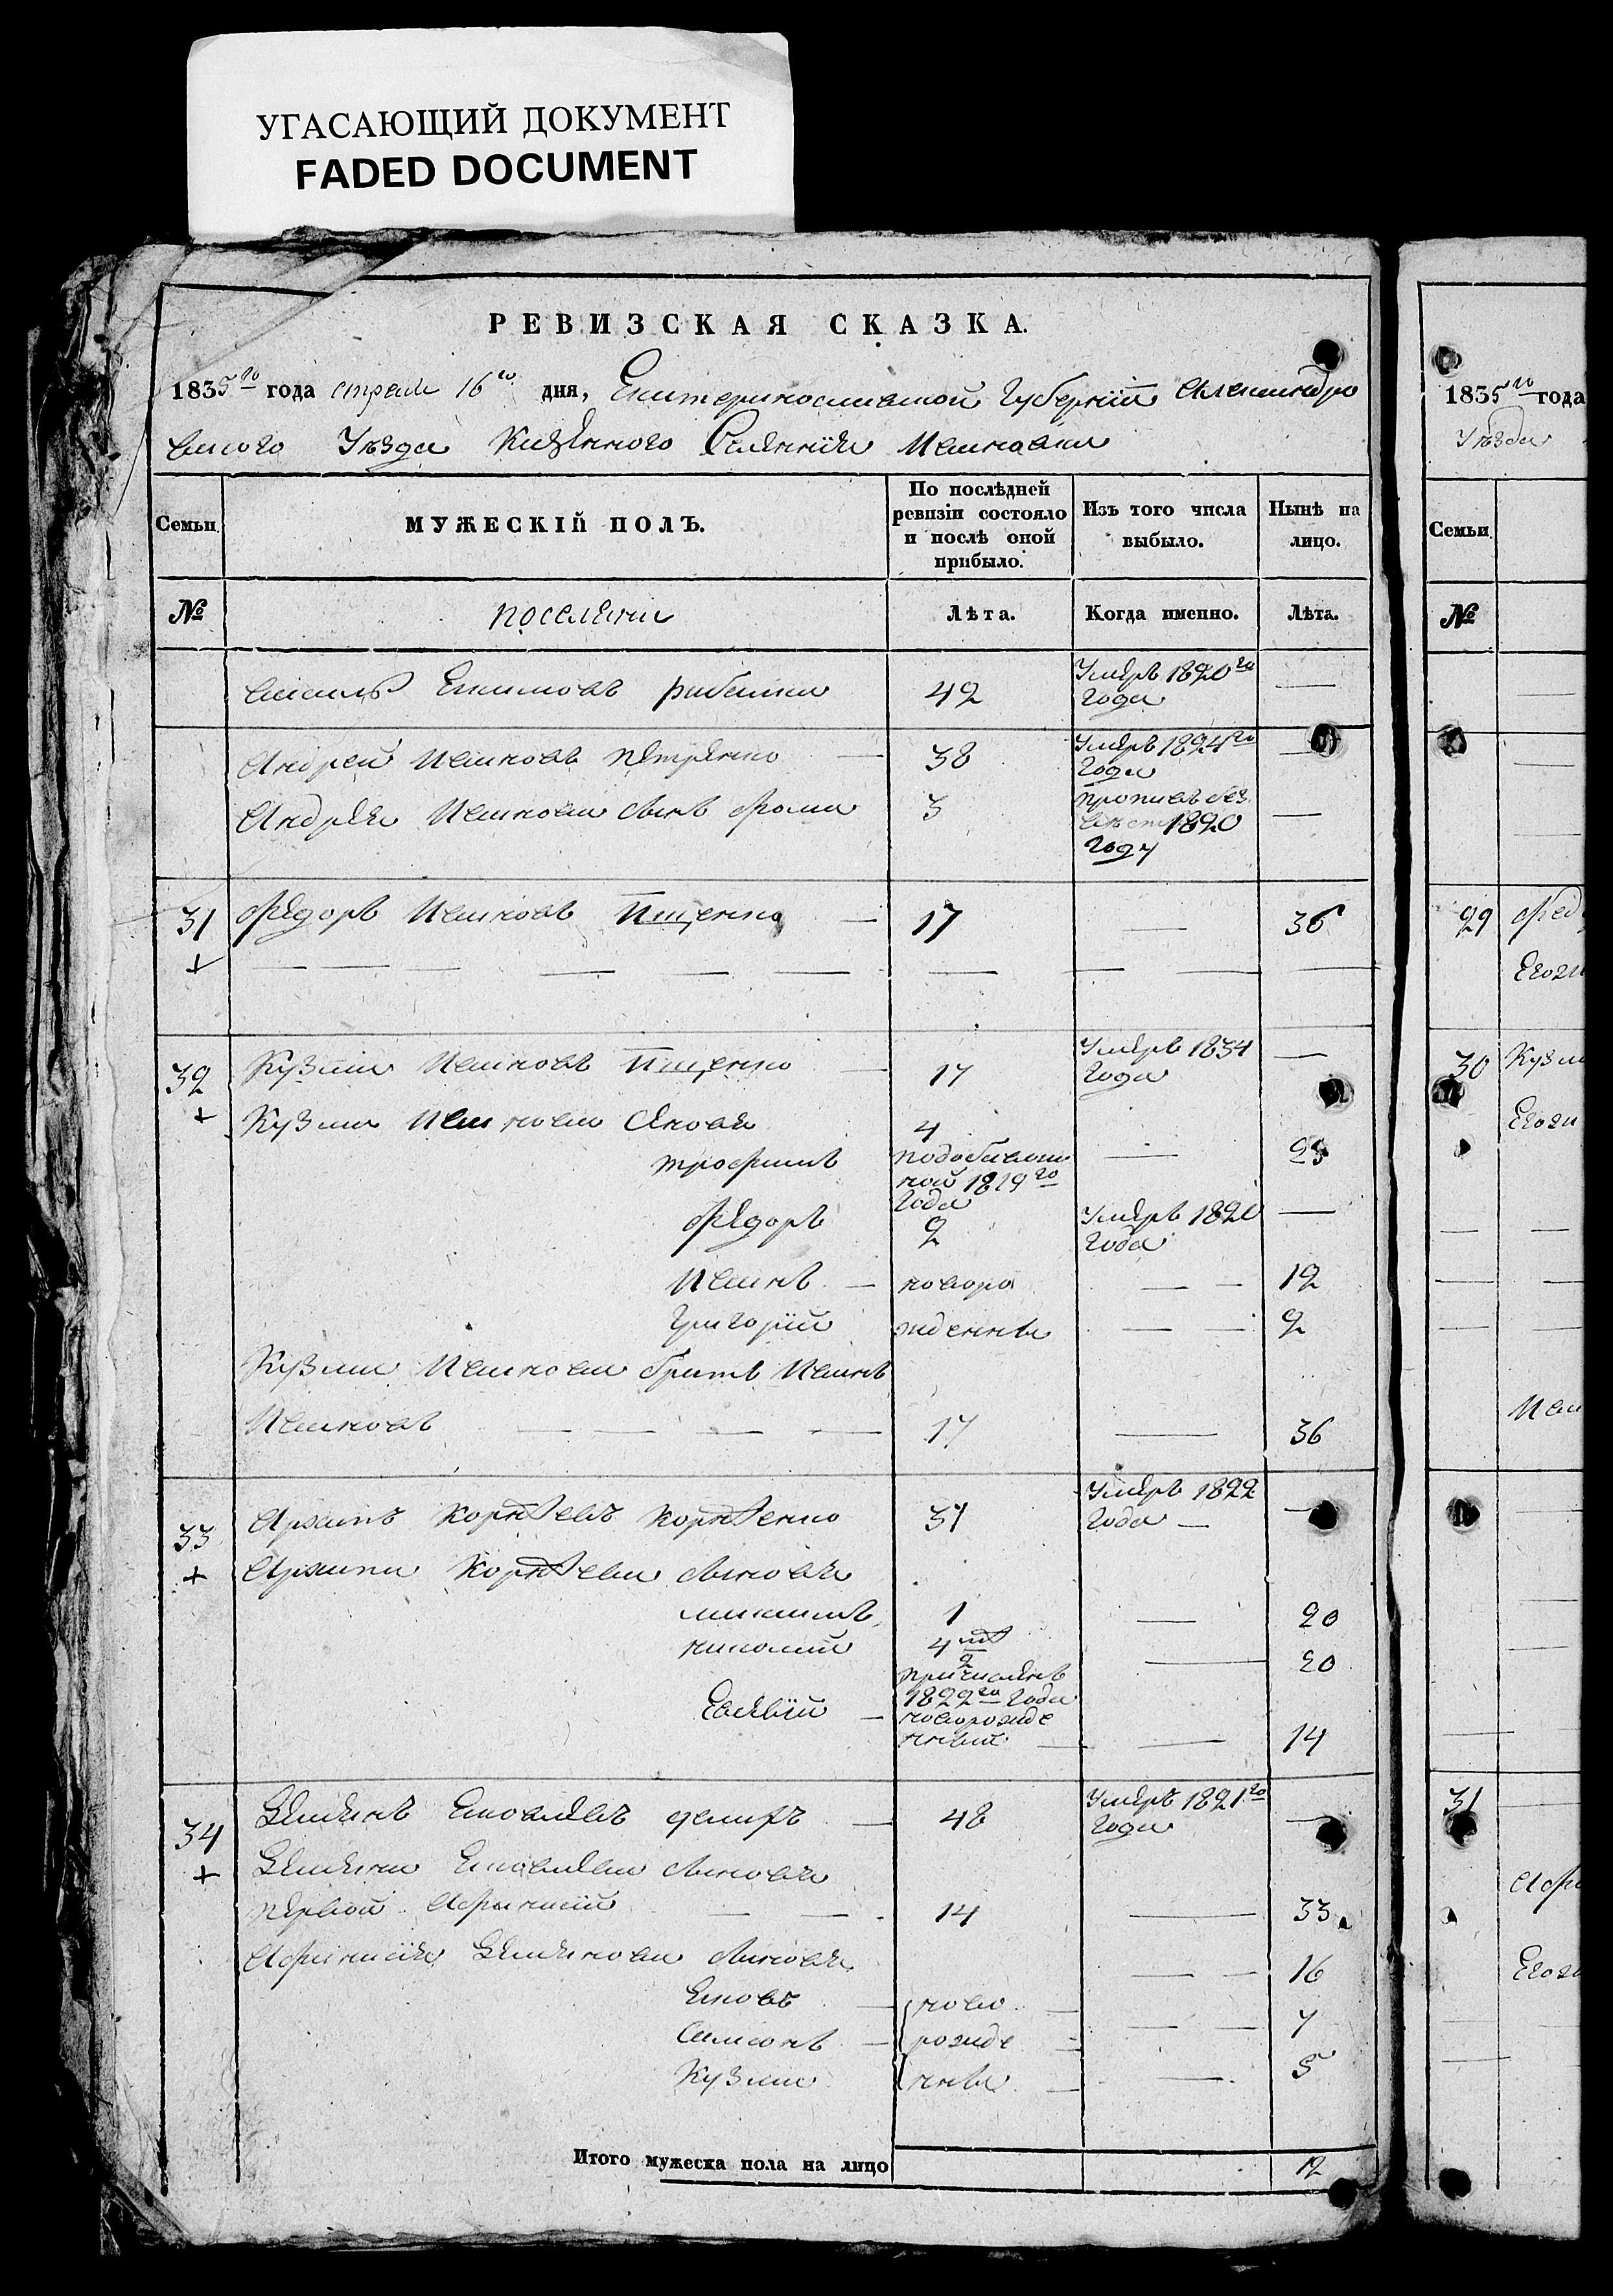 УГАСАЮЩИЙ ДОКУМЕНТ
FADED DOCUMENT
РЕВИЗСКАЯ СКАЗКА.
1835го года 16го дня, Екатеринославской Губернiи Александро
вского Уѣзда Казенного Селенiя Ивановки
Семьи.
МУЖЕСКIЙ ПОЛЪ.
По послѣдней ревизiи состояло и послѣ оной прибыло.
Изъ того числа выбыло.
Нынѣ на лицо.
№
поселяни
Лѣта.
Когда именно.
Лѣта.
Екимовъ 42 Умеръ 1820го года —
Андрей Ивановъ Петренко — 38 Умеръ 1824го года —
Андрея Иванова сынъ Фома 3 пропавъ без вѣсти 1820 году —
31 Федоръ Ивановъ Ищенко — 17 — 36
+
32 Кузма Ивановъ Ищенко — 17 Умеръ 1834 года —
+ Кузмы Иванова Сыновья 4
трофимъ подобывшей 1819го года — 23
Федоръ 2 Умеръ 1820 года —
Иванъ — новоро — 12
Григорiй жденны — 2
Кузмы Иванова братъ Иванъ
Ивановъ — 17 — 36
33 Архипъ Корнѣевъ Корнѣенко 37 Умеръ 1822 года — —
+ Архипа Корнѣева сыновья
1 — 20
николай 4 2 причисленъ 1822го года — 20
Евсевiй — новорожденный — 14
34 Яковлевъ 48 Умеръ 1821го года —
+ Яковлева сыновья
первой Афанасiй — 14 — 33
Афанасiя сыновья — 16
Яковъ — ново
Самсонъ — рожде — 7
Кузма нны — 5
Итого мужеска пола на лицо 12
1835го года
Уѣзда
Семьи
№
29 Фед
Егозы
30 Кузм
Егозы
Ива
31
Афа
Егозы